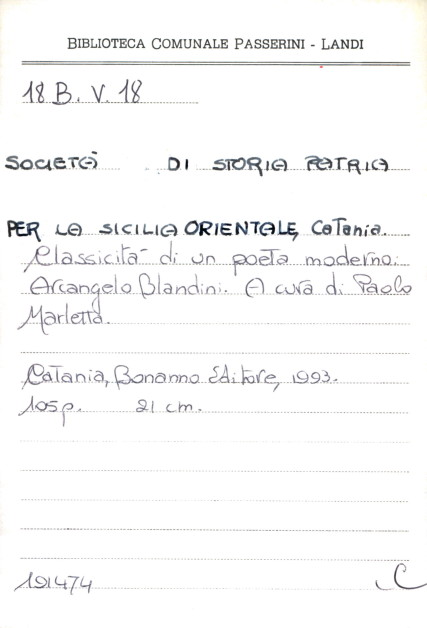 BIBLIOTECA COMUNALE PASSERINI - LANDI
18 B. V. 18
SOCIETÀ DI STORIA PATRIA
PER LA SICILIA ORIENTALE, CATania.
Classicità di un poeta moderno:
Arcangelo Blandini. A cura di Paolo
Marletta.
Catania, Bonanno Editore, 1993.
105p. 21 cm.
191474 C